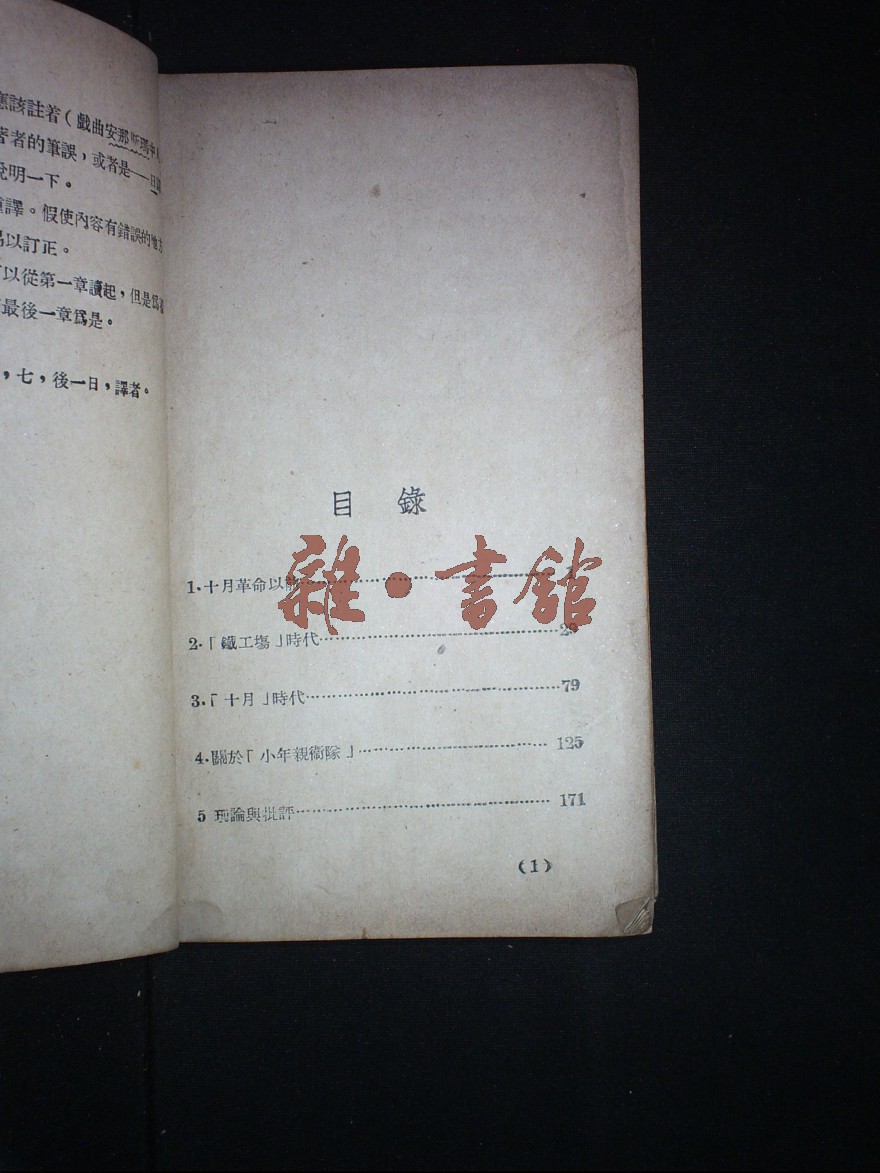 應該註着(戲曲安那斯瑪中
著者的筆誤,或者是——日
說明一下。
重譯。假使內容有錯誤的地方
以訂正。
可以從第一章讀起,但是爲
最後一章爲是。
,七,後一日,譯者。
目錄
1.十月革命以前……………1
2.「鐵工塲」時代……………29
3.「十月」時代……………79
4.關於「少年親衛隊」……………125
5 理論與批評……………171
(1)
雜·書館